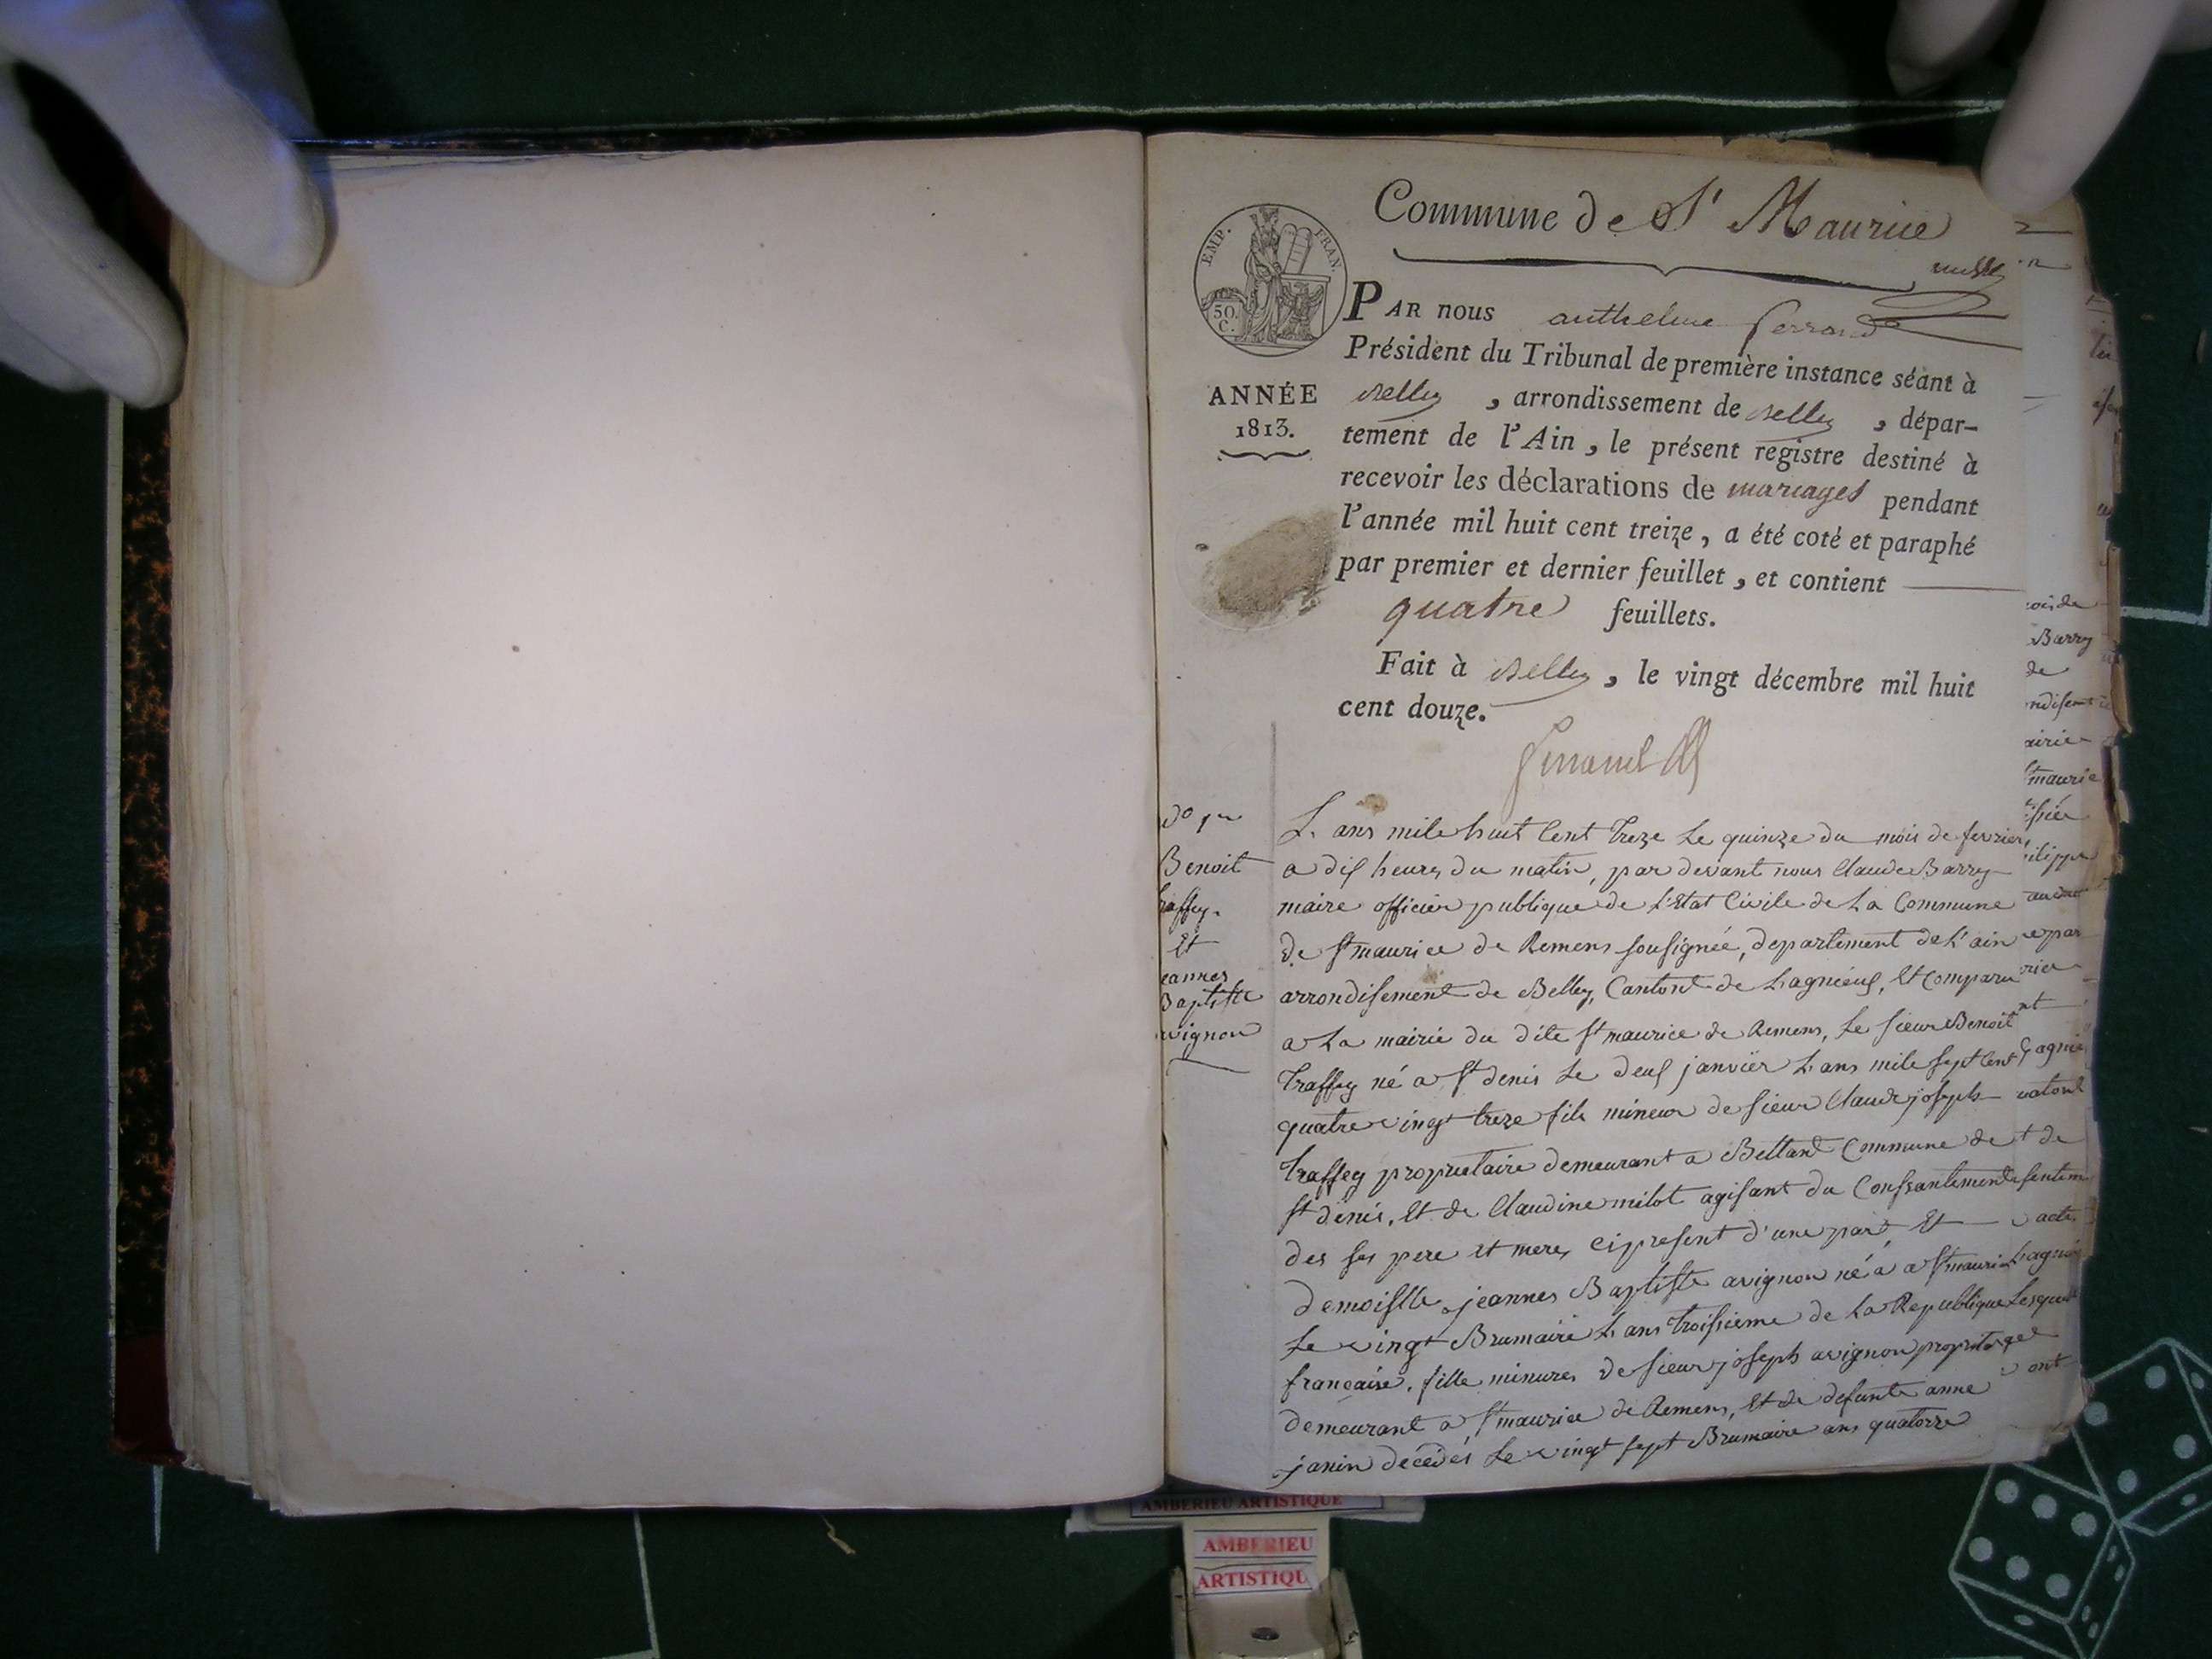 Commune de St Maurice
EMP. FRAN.
50.
C.
ANNÉE
1813.
PAR nous anthelme ferrand
Président du Tribunal de première instance séant à
Belley, arrondissement de Belley, dépar-
tement de l'Ain, le présent registre destiné à
recevoir les déclarations de mariages pendant
l'année mil huit cent treize, a été coté et paraphé
par premier et dernier feuillet, et contient
quatre feuillets.
Fait à Belley, le vingt décembre mil huit
cent douze.
Benoit
traffey.
Et
jeannes
Baptiste
avignon
L. ans mile huit Cent treze Le quinze du mois de fevrier,
a dix heures du matin, par devant nous Claude Barry
maire officier publique de L'Etat Civile de La Commune
de St maurice de Remens sousignée, departement de L'ain
arrondisement de Belley, Cantont de Lagnieux, Et Comparu
a La mairie du dite St maurice de Remens, Le sieur Benoit
Traffey né a St denis Le deux janvier L'ans mile sept Cent
quatre vingt treze fils mineur de sieur Claude joseph
Traffey proprietaire demeurant a Bettant Commune de
St denis, Et de Claudine milot agisant du Consantement
des ses pere et mere, ci present d'une part, Et
demoiselle jeannes Baptiste avignon né a a St maurice
Le vingt Brumaire L'ans troisieme de La Republique
francaise, fille minure de sieur joseph avignon
demeurant a St maurice de Remens, Et de defunte anne
janin décédés Le vingt sept Brumaire ans quatorze
ois de
Barry
de
airie
St maurie
AMBERIEU ARTISTIQUE
AMBERIEU
ARTISTIQU